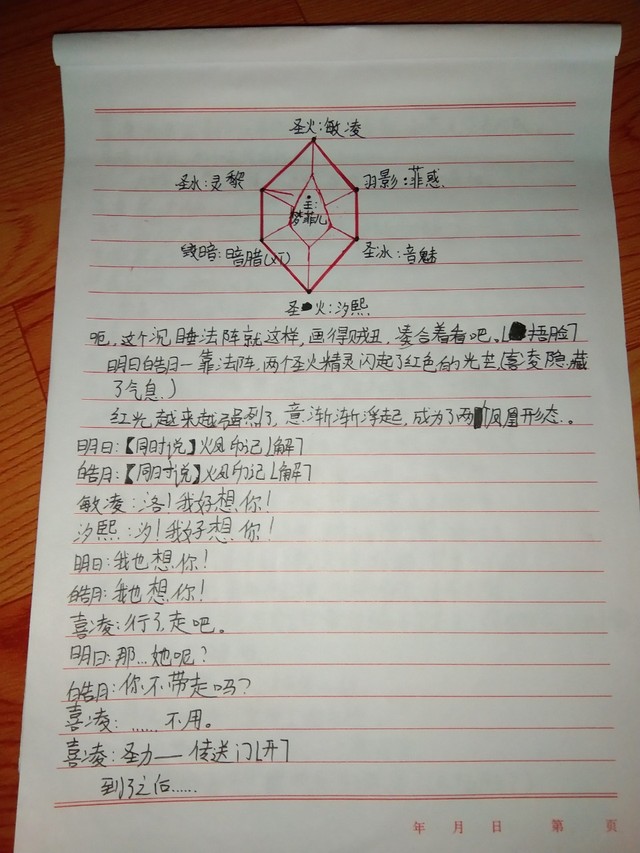 圣火：敏凌
圣水：灵黎
羽影：菲惑
主：
梦菲儿
毁暗：暗腊(XT)
圣冰：音魅
圣火：汐熙
呃，这个沉睡法阵就这样，画得贼丑，凑合着看吧。[捂脸]
明日皓月一靠法阵，两个圣火精灵闪起了红色的光芒(喜凌隐藏
了气息.)
红光越来越强烈了，竟渐渐浮起，成为了两凤凰形态。
明日：【同时说】火凤印记[解]
皓月：【同时说】火凤印记[解]
敏凌：洛！我好想你！
汐熙：汐！我好想你！
明日：我也想你！
皓月：我也想你！
喜凌：行了，走吧。
明日：那…她呢？
皓月：你不带走吗？
喜凌：……不用。
喜凌：圣力——传送门[开]
到了之后……
年 月 日 第 页